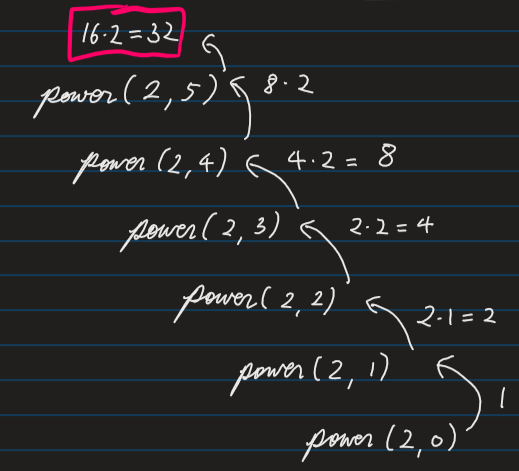 16·2=32
power(2,5) 8·2
power(2,4) 4·2 = 8
power(2,3) 2·2=4
power(2,2) 2·1=2
power(2,1)
1
power(2,0)